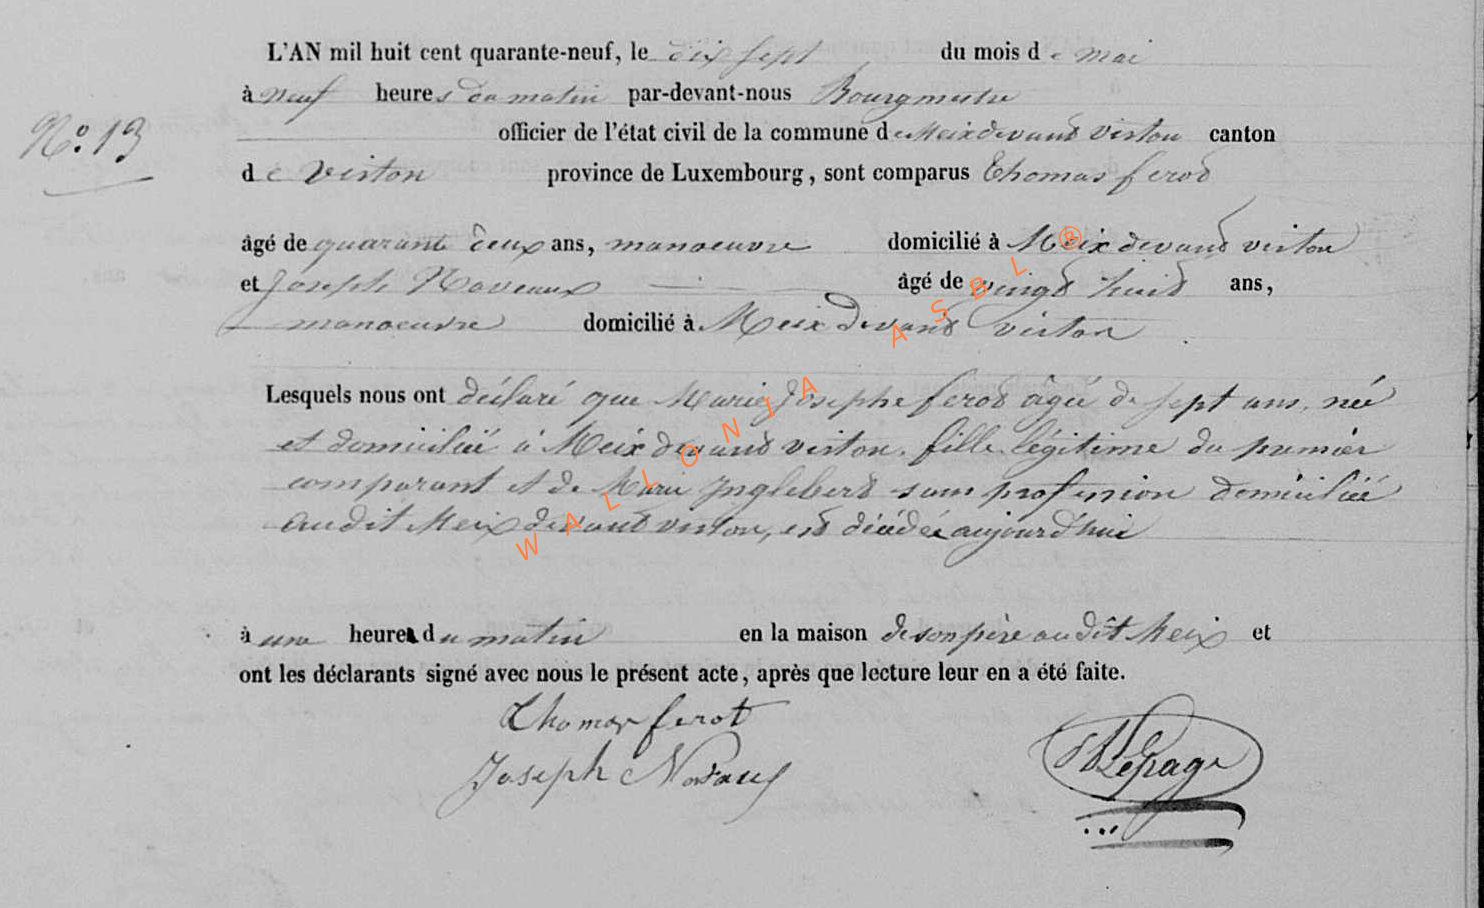 L'AN mil huit cent quarante-neuf, le dix sept du mois de mai
à neuf heures du matin par-devant-nous Bourgmestre
N.o 13
officier de l'état civil de la commune de Meix devand virton canton
de virton province de Luxembourg, sont comparus Thomas ferod
âgé de quarante deux ans, manoeuvre domicilié à Meix devand virton
et Joseph Naveaux âgé de vingd huid ans,
manoeuvre domicilié à Meix devand virton
Lesquels nous ont déclaré que Marie Josephe ferod âgée de sept ans, née
et domiciliée à Meix devand virton, fille légitime du premier
comparant et de Marie Ingleberd sans profession domiciliée
audit Meix devand virton, est décédée aujourd'hui
à une heure du matin en la maison de son père audit Meix et
ont les déclarants signé avec nous le présent acte, après que lecture leur en a été faite.
Thomas ferot
Joseph
Lepage
WALLONIA ASBL®